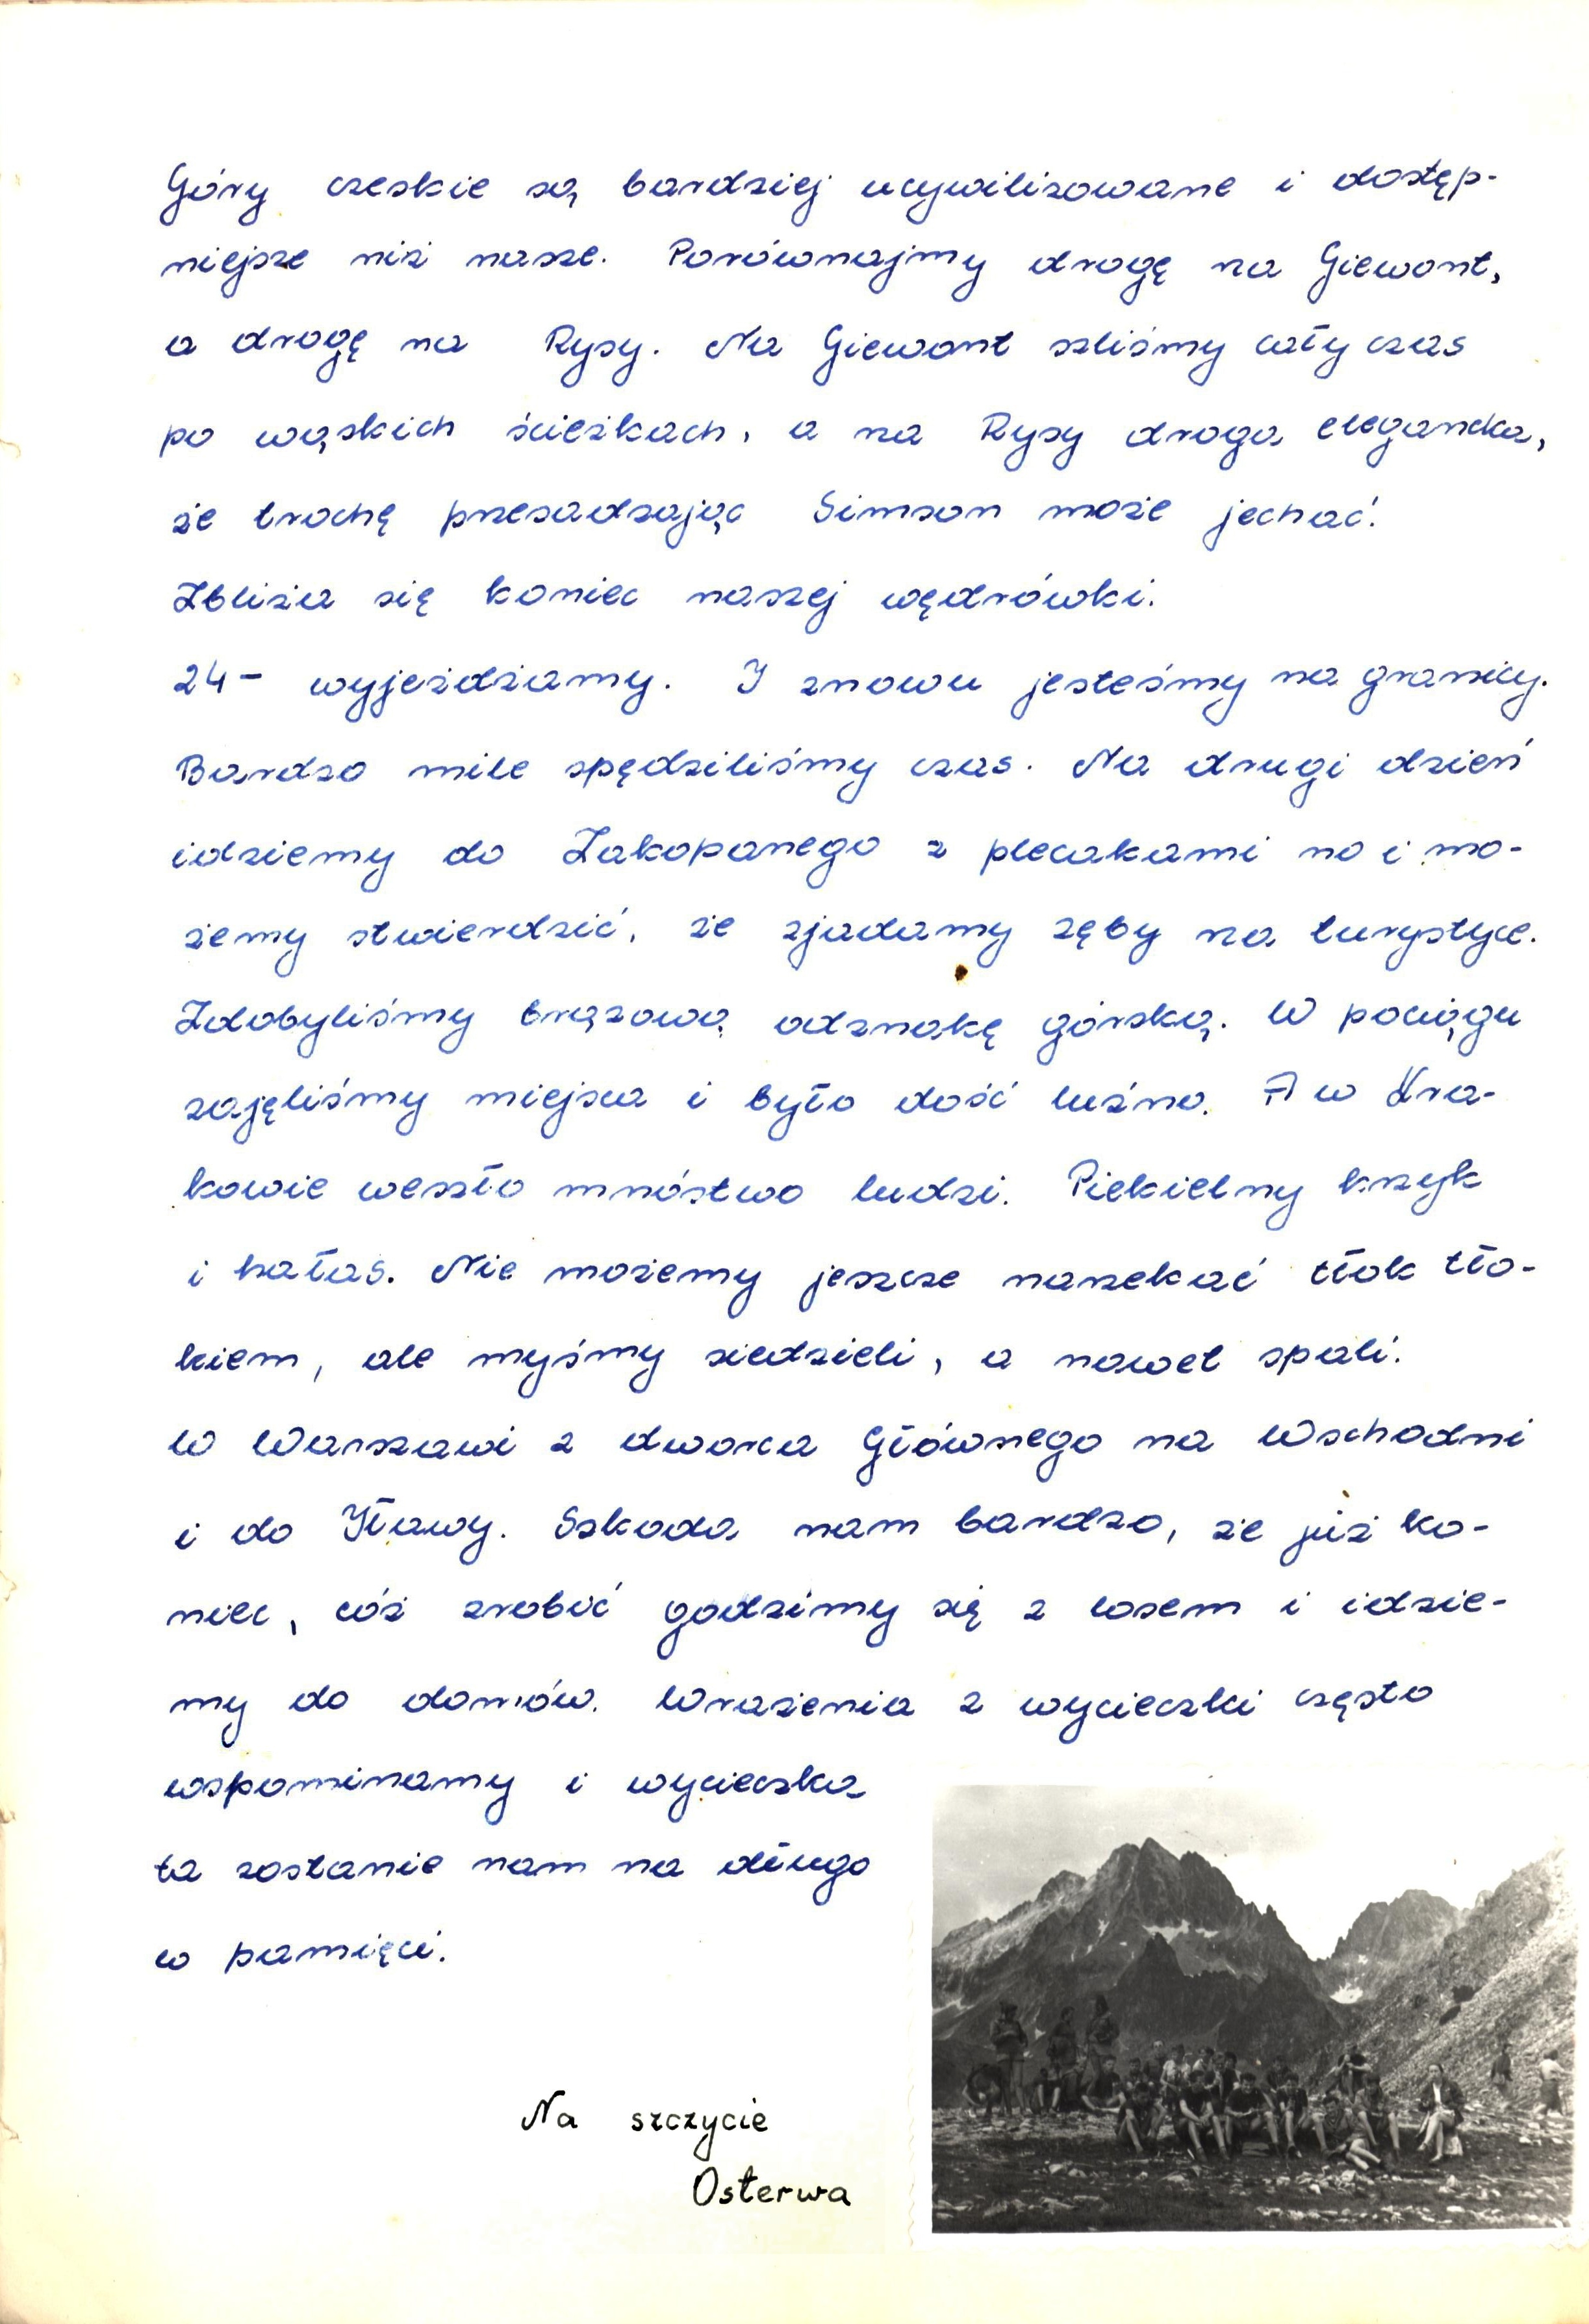 Góry czeskie są bardziej ucywilizowane i dostęp-
niejsze niż nasze. Porównajmy drogę na Giewont,
a drogę na Rysy. Na Giewont szliśmy cały czas
po wąskich ścieżkach, a na Rysy droga elegancka,
że trochę przesadzając Simson może jechać.
Zbliża się koniec naszej wędrówki.
24- wyjeżdżamy. I znowu jesteśmy na granicy.
Bardzo mile spędziliśmy czas. Na drugi dzień
idziemy do Zakopanego z plecakami no i mo-
żemy stwierdzić, że zjadamy zęby na turystyce.
Zdobyliśmy brązową odznakę górską. W pociągu
zajęliśmy miejsca i było dość luźno. A w Kra-
kowie weszło mnóstwo ludzi. Piekielny krzyk
i hałas. Nie możemy jeszcze narzekać tłok tło-
kiem, ale myśmy siedzieli, a nawet spali.
W Warszawi z dworca Głównego na Wschodni
i do Iławy. Szkoda nam bardzo, że już ko-
niec, cóż zrobić godzimy się z losem i idzie-
my do domów. Wrażenia z wycieczki często
wspominamy i wycieczka
ta zostanie nam na długo
w pamięci.
Na szczycie
Osterwa